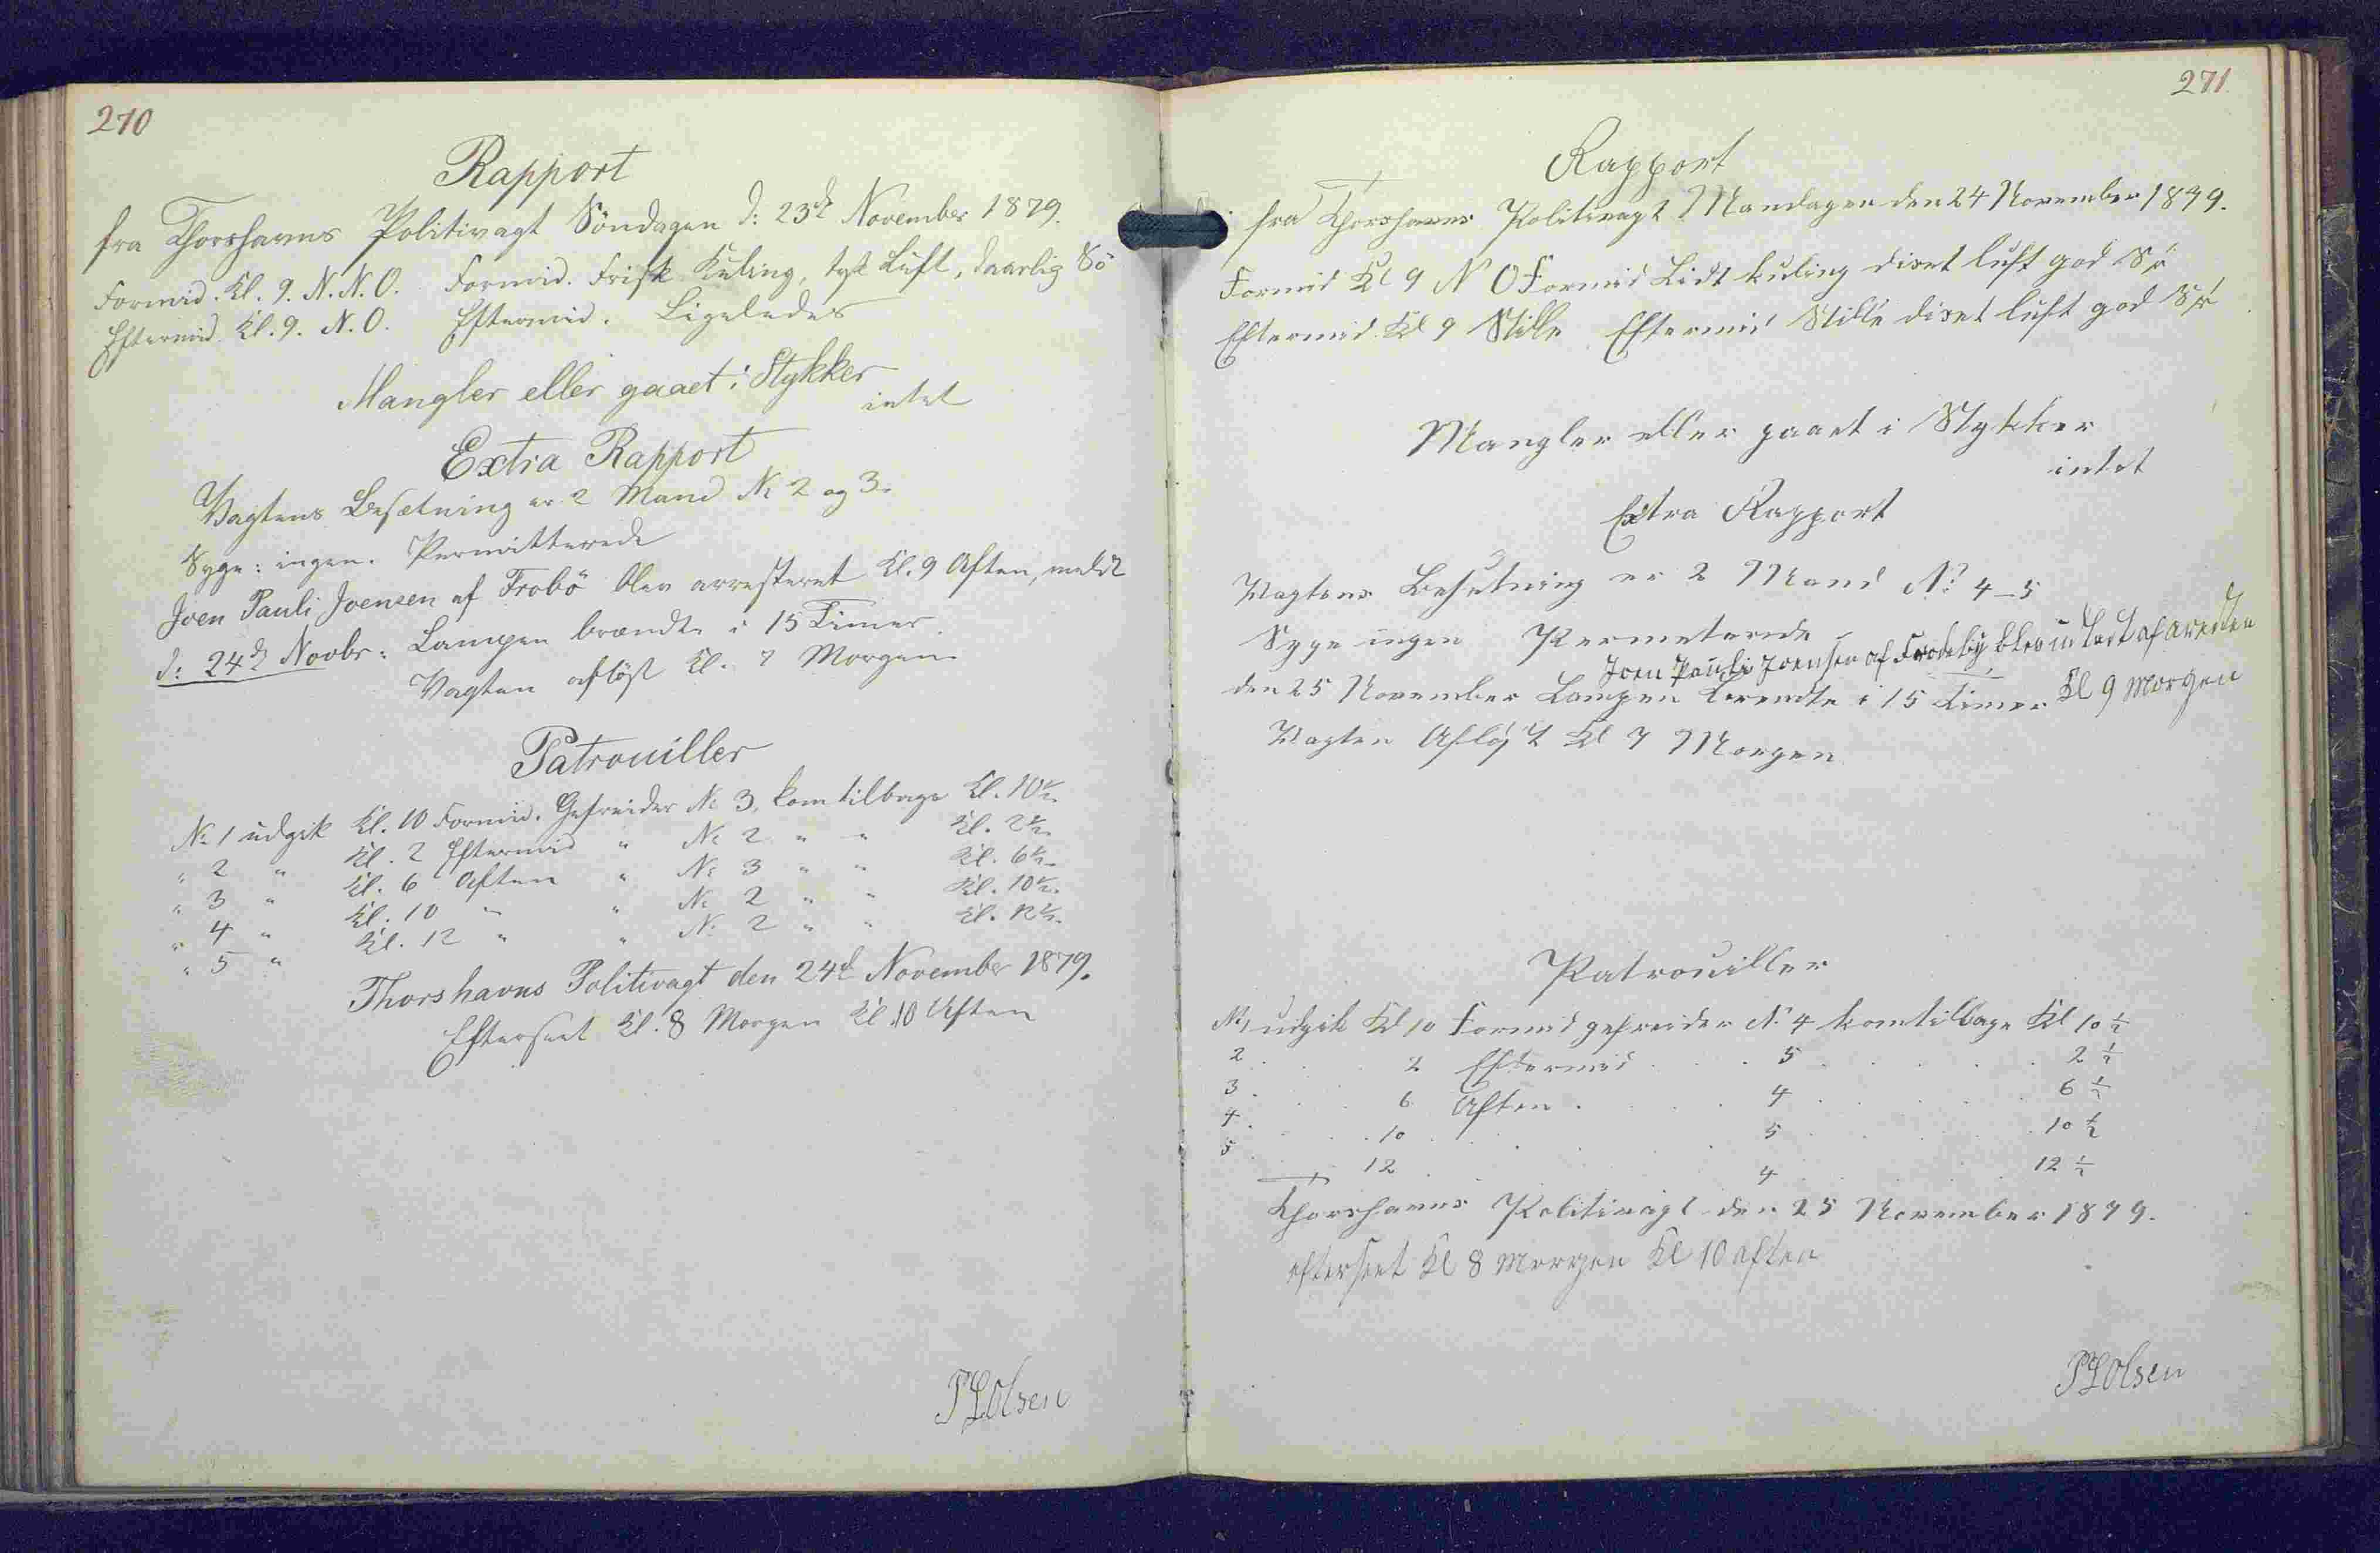 270
Rapport
fra Thorshavns Politivagt Söndagen d: 23de November 1879.
Formid. Kl. 9. N.N.O. Formid. Frisk Kuling, tyk Luft, daarlig Sö
Eftermid Kl. 9. N.O. Eftermid. Ligeledes
Mangler eller gaaet i Stykker
intet
Extra Rapport
Vagtens Besætning er 2 Mand No 2 og 3.
Syge: ingen. Permitterede
Joen Pauli Joensen af Frobö blev arresteret Kl. 9 Aften, meldt
d: 24de Novbr: Lampen brændte i 15 Timer.
Vagten aflöst Kl. 7 Morgen
Patrouiller
No 1 udgik Kl. 10 Formid. Gefreider No 3, kom tilbage Kl. 10½.
" 2 " Kl. 2 Eftermid " No 2 " " Kl. 2½.
" 3 " Kl. 6 Aften " No 3 " " Kl. 6½.
" 4 " Kl. 10 " " No 2 " " Kl. 10½.
" 5 " Kl. 12 " " No 2 " " Kl. 12½.
Thorshavns Politivagt den 24de November 1879.
Efterseet Kl. 8 Morgen Kl. 10 Aften
Olsen
271.
Rapport
fra Thorshavns Politivagt Mandagen den 24 November 1879.
Formid Kl 9 N O Formid Lidt kuling diset luft god Sö
Eftermid. Kl 9 Stille Eftermid Stille diset luft god Sö
Mangler eller gaaet i Stykker
intet
Extra Rapport
Vagtens Besetning er 2 Mand No 4-5
Syge ingen Permeterede
Joen Pauli Joensen af Frodeby blev udladt af aresten
den 25 November Lampen brendte i 15 Timer Kl 9 Morgen
Vagten Afløst Kl 7 Morgen
Patrouiller
No 1 udgik Kl 10 Formid gefreider No 4 kom tilbage Kl 10 ½
2 . . 2 Eftermid . . 5 . . . 2 ½
3 . . 6 Aften . . 4 . . . 6 ½
4 . . 10 . . 5 . . . 10 ½
5 . . 12 . . 4 . . . 12 ½
Thorshavns Politivagt den 25 November 1879.
efterseet Kl 8 Morgen Kl 10 aften
Olsen